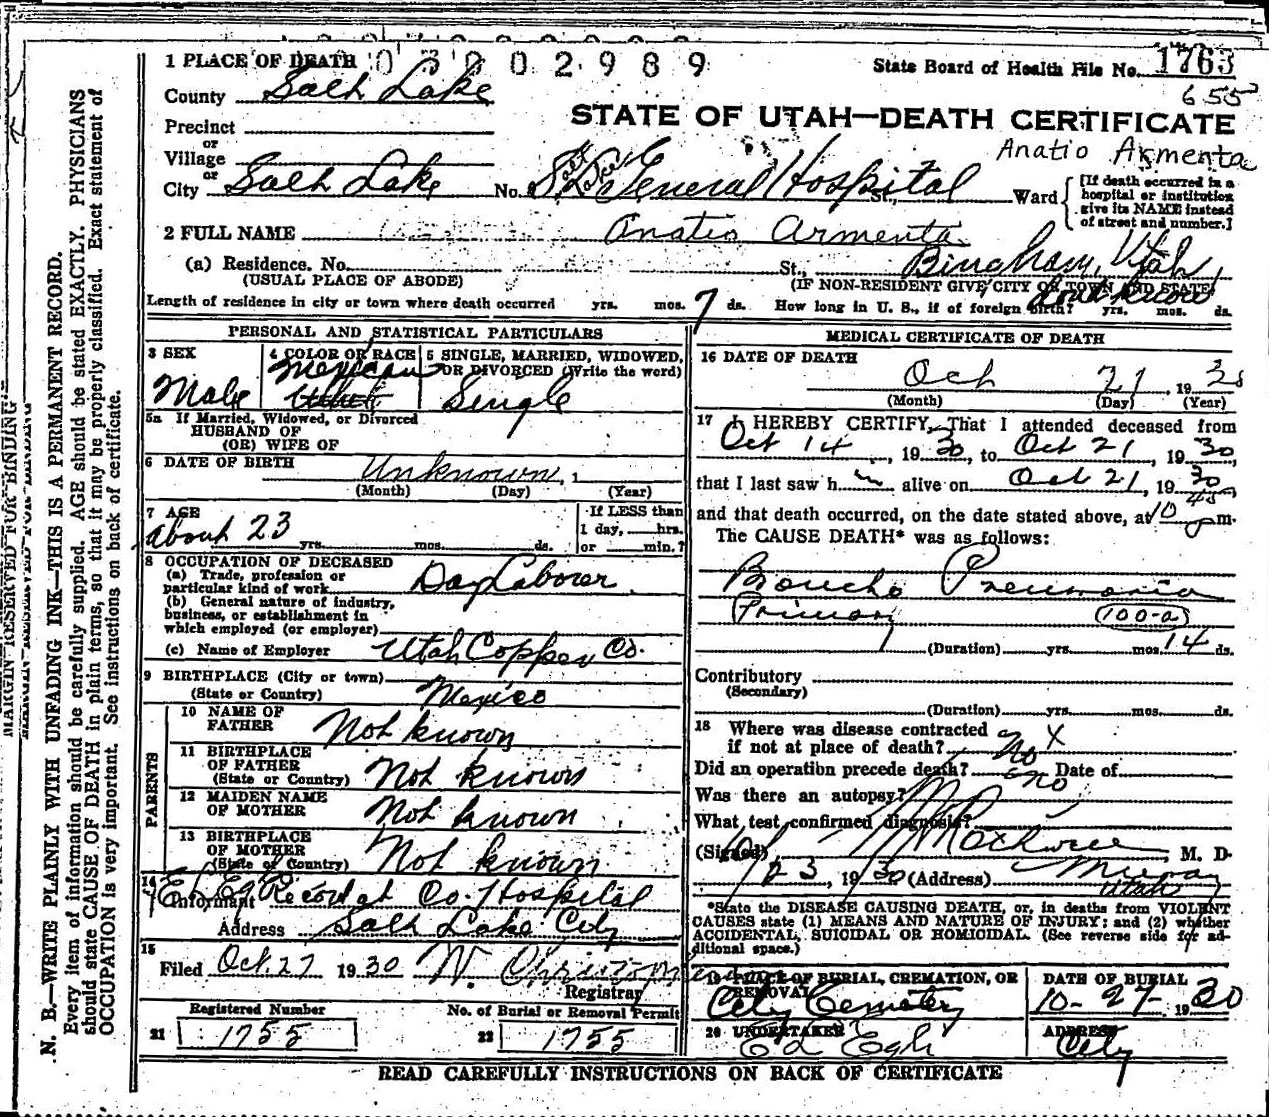 1 PLACE OF DEATH 0300 2989
State Board of Health File No. 1763
County Salt Lake
655
STATE OF UTAH—DEATH CERTIFICATE
Precinct
or
Village
Anatio Armenta
or
City Salt Lake No. Salt Lake General Hospital St., Ward
[If death occurred in a hospital or institution give its NAME instead of street and number.]
2 FULL NAME Anatio Armenta
(a) Residence. No. St., Bingham, Utah
(USUAL PLACE OF ABODE) (IF NON-RESIDENT GIVE CITY OR TOWN AND STATE)
Length of residence in city or town where death occurred yrs. mos. 7 ds. How long in U. S., if of foreign birth? dont know yrs. mos. ds.
PERSONAL AND STATISTICAL PARTICULARS
3 SEX Male
4 COLOR OR RACE Mexican
5 SINGLE, MARRIED, WIDOWED, OR DIVORCED (Write the word) Single
5a If Married, Widowed, or Divorced
HUSBAND OF
(OR) WIFE OF
6 DATE OF BIRTH Unknown, 1
(Month) (Day) (Year)
7 AGE
about 23 yrs. mos. ds.
If LESS than
1 day, hrs.
or min.?
8 OCCUPATION OF DECEASED
(a) Trade, profession or
particular kind of work Day Laborer
(b) General nature of industry,
business, or establishment in
which employed (or employer)
(c) Name of Employer Utah Copper Co.
9 BIRTHPLACE (City or town)
(State or Country) Mexico
PARENTS
10 NAME OF
FATHER Not known
11 BIRTHPLACE
OF FATHER
(State or Country) Not known
12 MAIDEN NAME
OF MOTHER Not known
13 BIRTHPLACE
OF MOTHER
(State or Country) Not known
14
Informant Record at Co. Hospital
Address Salt Lake City
15
Filed Oct. 27 1930 W. Christopherson
Registrar
Registered Number
21 1755
No. of Burial or Removal Permit
22 1755
MEDICAL CERTIFICATE OF DEATH
16 DATE OF DEATH
Oct 21 1930
(Month) (Day) (Year)
17 I HEREBY CERTIFY, That I attended deceased from
Oct 14, 1930, to Oct 21, 1930,
that I last saw h im alive on Oct 21, 1930
and that death occurred, on the date stated above, at 10 45 p m.
The CAUSE DEATH* was as follows:
Broncho Pneumonia
Primary 100-a
(Duration) yrs. mos. 14 ds.
Contributory
(Secondary)
(Duration) yrs. mos. ds.
18 Where was disease contracted
if not at place of death? X
Did an operation precede death? No Date of
Was there an autopsy? no
What test confirmed diagnosis?
(Signed), M. D.
10/23, 1930 (Address) Murray Utah
*State the DISEASE CAUSING DEATH, or, in deaths from VIOLENT
CAUSES state (1) MEANS AND NATURE OF INJURY; and (2) whether
ACCIDENTAL, SUICIDAL OR HOMICIDAL. (See reverse side for ad-
ditional space.)
19 PLACE OF BURIAL, CREMATION, OR
REMOVAL
City Cemetery
DATE OF BURIAL
10-27-1930
20 UNDERTAKER
Ed Egli
ADDRESS
City
READ CAREFULLY INSTRUCTIONS ON BACK OF CERTIFICATE
MARGIN RESERVED FOR BINDING
N. B.—WRITE PLAINLY WITH UNFADING INK—THIS IS A PERMANENT RECORD.
Every item of information should be carefully supplied. AGE should be stated EXACTLY. PHYSICIANS
should state CAUSE OF DEATH in plain terms, so that it may be properly classified. Exact statement of
OCCUPATION is very important. See instructions on back of certificate.